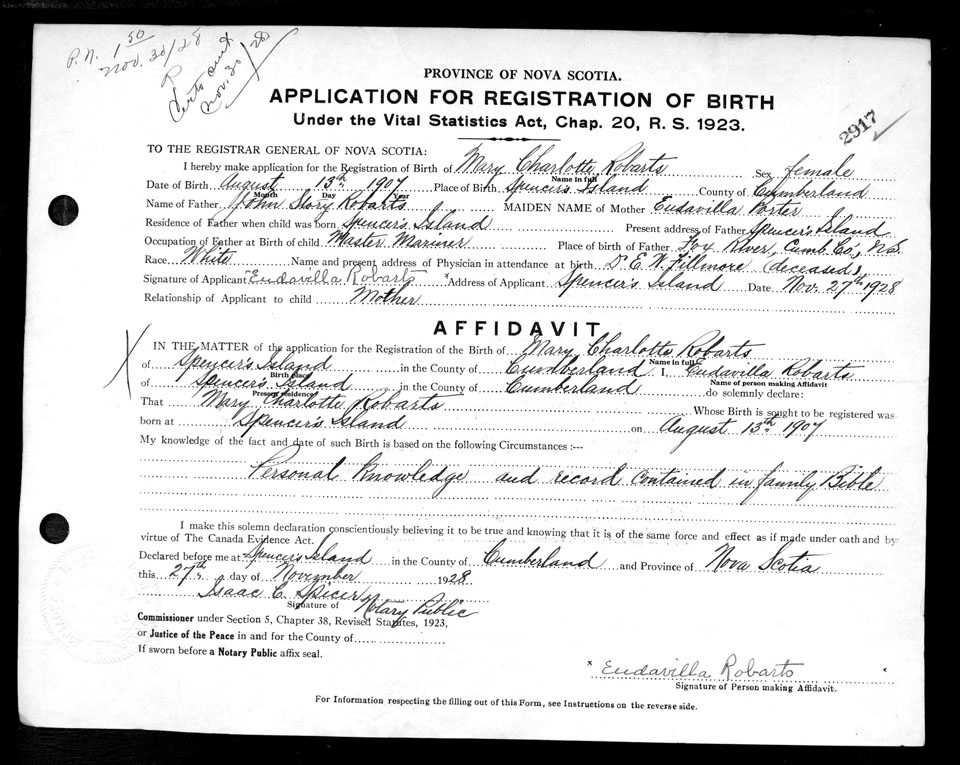 P.N. 1 50
Nov. 30/28
Certs sent
Nov. 30/28
2917
PROVINCE OF NOVA SCOTIA.
APPLICATION FOR REGISTRATION OF BIRTH
Under the Vital Statistics Act, Chap. 20, R. S. 1923.
TO THE REGISTRAR GENERAL OF NOVA SCOTIA:
I hereby make application for the Registration of Birth of Mary Charlotte Robarts Sex female
Name in full
Date of Birth August 13th 1907 Place of Birth Spencer's Island County of Cumberland
Month Day Year
Name of Father John Story Robarts MAIDEN NAME of Mother Eudavilla Porter
Residence of Father when child was born Spencer's Island Present address of Father Spencer's Island
Occupation of Father at Birth of child Master Mariner Place of birth of Father Fox River, Cumb. Co., N.S.
Race White Name and present address of Physician in attendance at birth Dr. E. W. Fillmore (deceased),
Signature of Applicant Eudavilla Robarts x Address of Applicant Spencer's Island Date Nov. 27th 1928
Relationship of Applicant to child Mother
AFFIDAVIT
IN THE MATTER of the application for the Registration of the Birth of Mary Charlotte Robarts
Name in full
of Spencer's Island in the County of Cumberland I, Eudavilla Robarts
Birth place Name of person making Affidavit
of Spencer's Island in the County of Cumberland do solemnly declare:
Present residence
That Mary Charlotte Robarts Whose Birth is sought to be registered was
born at Spencer's Island on August 13th 1907
My knowledge of the fact and date of such Birth is based on the following Circumstances :—
Personal knowledge and record contained in family Bible
I make this solemn declaration conscientiously believing it to be true and knowing that it is of the same force and effect as if made under oath and by
virtue of The Canada Evidence Act.
Declared before me at Spencer's Island in the County of Cumberland and Province of Nova Scotia
this 27th a day of November 1928
Isaac C. Spicer
Signature of Notary Public
Commissioner under Section 5, Chapter 38, Revised Statutes, 1923,
or Justice of the Peace in and for the County of
If sworn before a Notary Public affix seal.
x Eudavilla Robarts
Signature of Person making Affidavit.
For Information respecting the filling out of this Form, see Instructions on the reverse side.